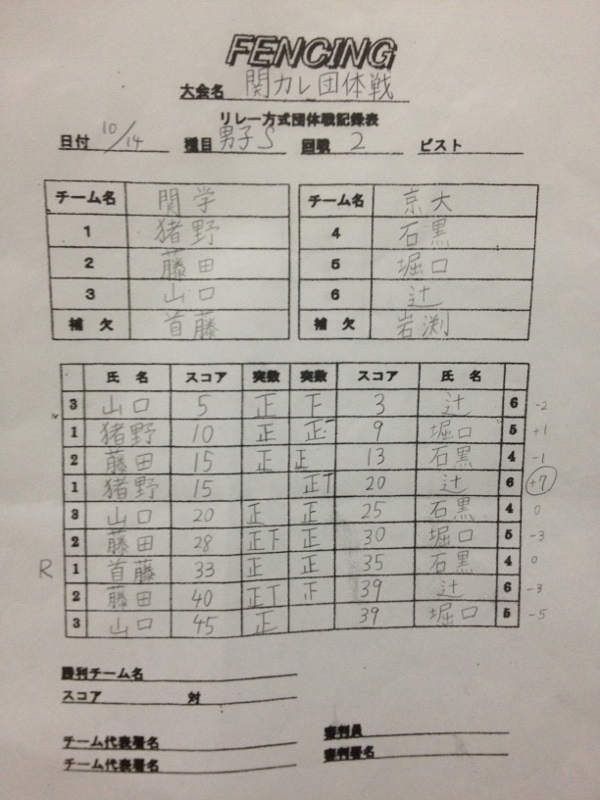 FENCING
大会名 関カレ団体戦
リレー方式団体戦記録表
日付 10/14 種目 男子S 回戦 2 ピスト
チーム名 関学 チーム名 京大
1 猪野 4 石黒
2 藤田 5 堀口
3 山口 6 辻
補欠 首藤 補欠 岩渕
氏名 スコア 実数 実数 スコア 氏名
3 山口 5 正 下 3 辻 6 -2
1 猪野 10 正 正一 9 堀口 5 +1
2 藤田 15 正 正 13 石黒 4 -1
1 猪野 15 正T 20 辻 6 +7
3 山口 20 正 正 25 石黒 4 0
2 藤田 28 正下 正 30 堀口 5 -3
R 1 首藤 33 正 正 35 石黒 4 0
2 藤田 40 正T 正 39 辻 6 -3
3 山口 45 正 39 堀口 5 -5
勝利チーム名
スコア 対
チーム代表署名 審判員
チーム代表署名 審判署名